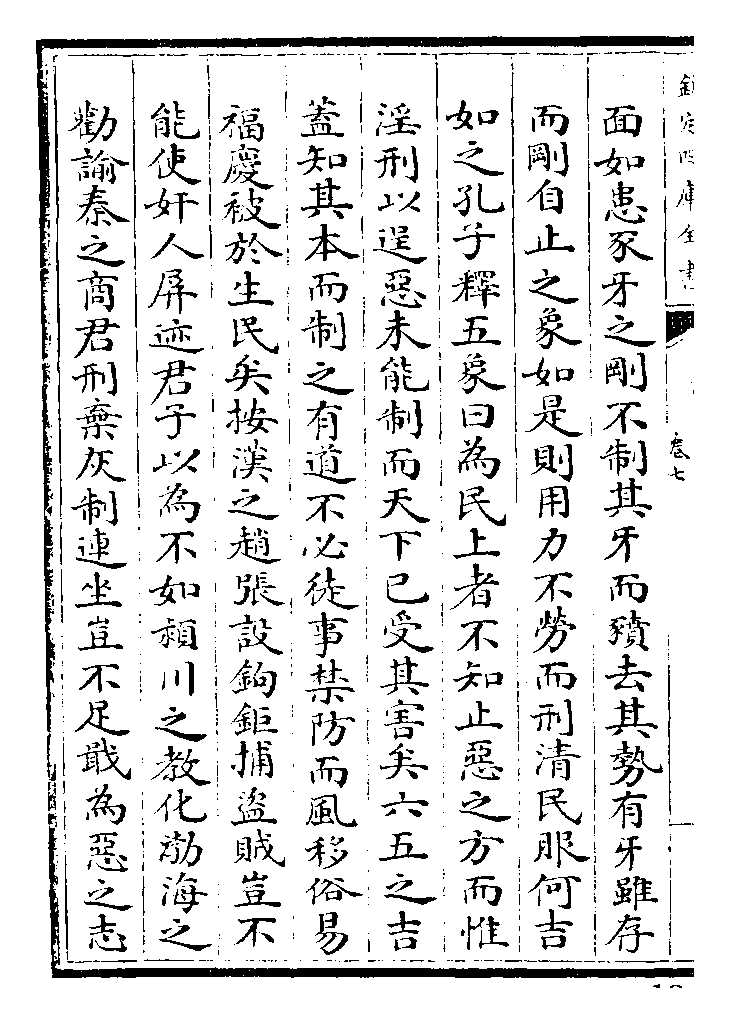 欽定四庫全書
卷七
面如患豕牙之剛不制其牙而豶去其勢有牙雖存
而剛自止之象如是則用力不勞而刑清民服何吉
如之孔子釋五象曰為民上者不知止惡之方而惟
淫刑以逞惡未能制而天下已受其害矣六五之吉
蓋知其本而制之有道不必徒事禁防而風移俗易
福慶被於生民矣按漢之趙張設鉤鉅捕盜賊豈不
能使奸人屏迹君子以為不如潁川之教化渤海之
勸諭秦之商君刑棄灰制連坐豈不足戢為惡之志